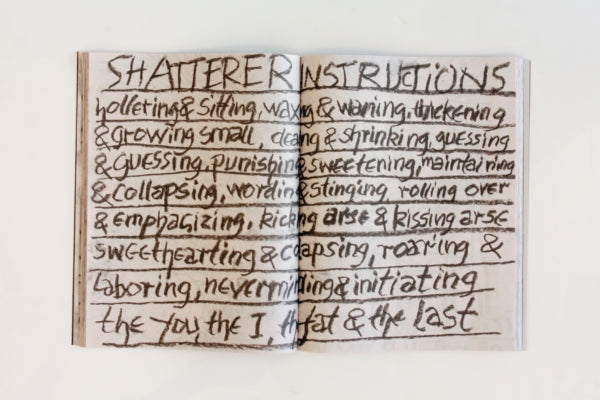 SHATTERER INSTRUCTIONS
hollering & Sitting, waxing & waning, thickening
& growing small, & shrinking, guessing
& guessing, punishing sweetening, maintaining
& collapsing, wording & stinging, rolling over
& emphasizing, kicking arse & kissing arse
sweethearting & collapsing, roaring &
laboring, neverminding & initiating
the you, the I, the fat & the last